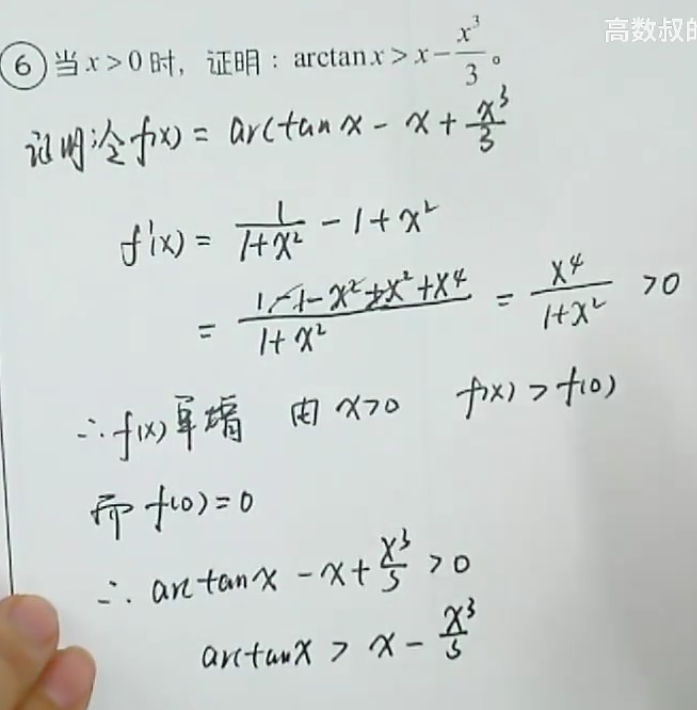 高数叔的
⑥ 当 x > 0 时, 证明: arctan x > x - x³/3。
证明令 f(x) = arctan x - x + x³/3
f'(x) = 1/(1+x²) - 1 + x²
= (1-1-x²+x²+x⁴)/(1+x²) = x⁴/(1+x²) >0
∴ f(x) 单增 由 x>0 f(x) > f(0)
而 f(0)=0
∴ arctan x - x + x³/3 > 0
arctan x > x - x³/3